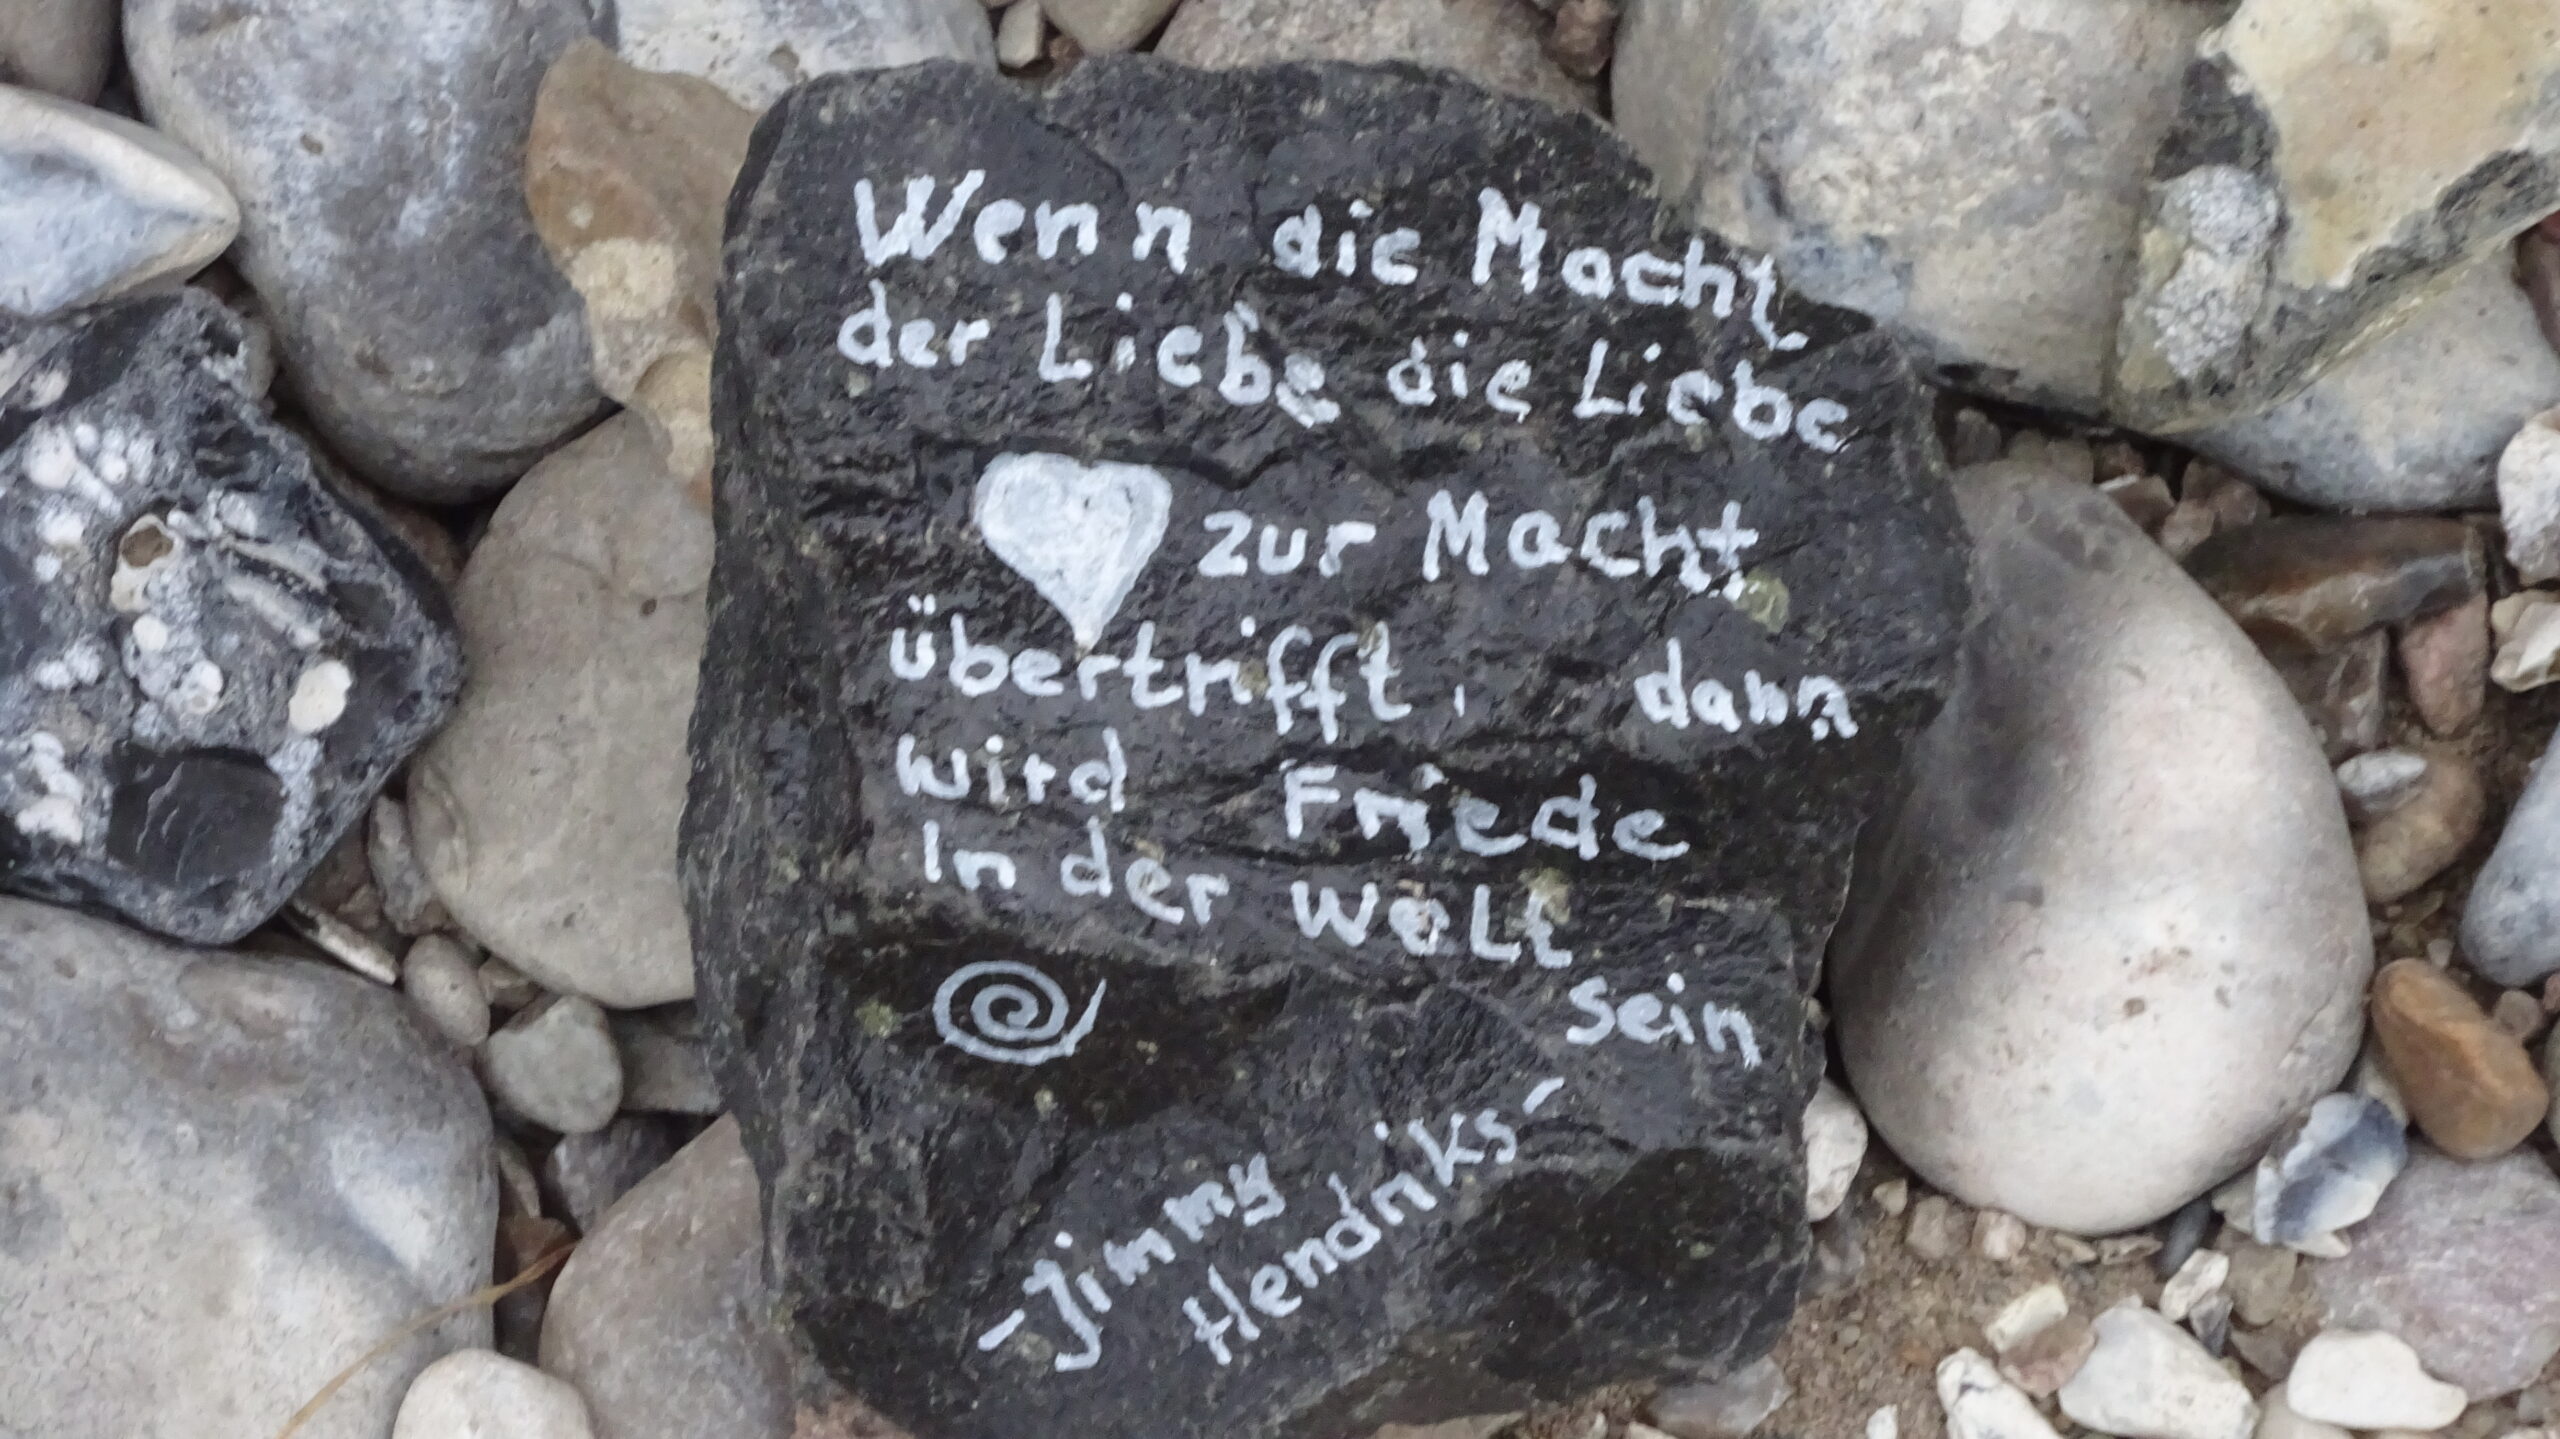 Wenn die Macht
der Liebe die Liebe
zur Macht
übertrifft, dann
wird Friede
in der Welt
sein
-Jimmy
Hendriks-